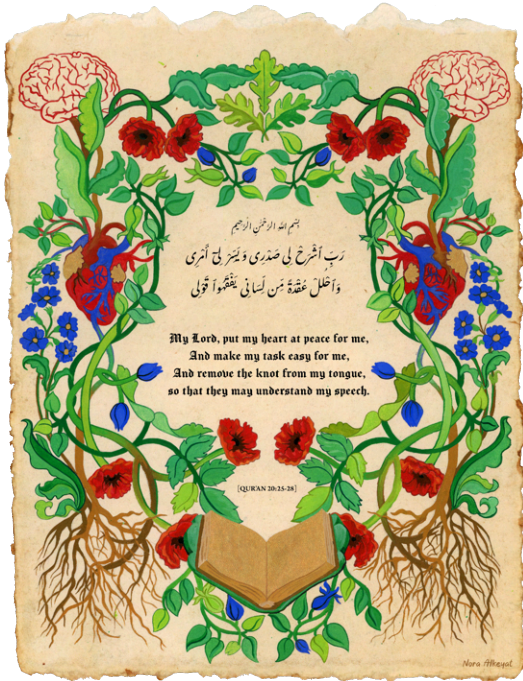 بِسْمِ اللهِ الرَّحْمٰنِ الرَّحِيْمِ
رَبِّ ٱشْرَحْ لِى صَدْرِى وَيَسِّرْ لِىٓ أَمْرِى
وَٱحْلُلْ عُقْدَةً مِّن لِّسَانِى يَفْقَهُوا۟ قَوْلِى
My Lord, put my heart at peace for me,
And make my task easy for me,
And remove the knot from my tongue,
so that they may understand my speech.
[QUR'AN 20:25-28]
Nora Alkayal